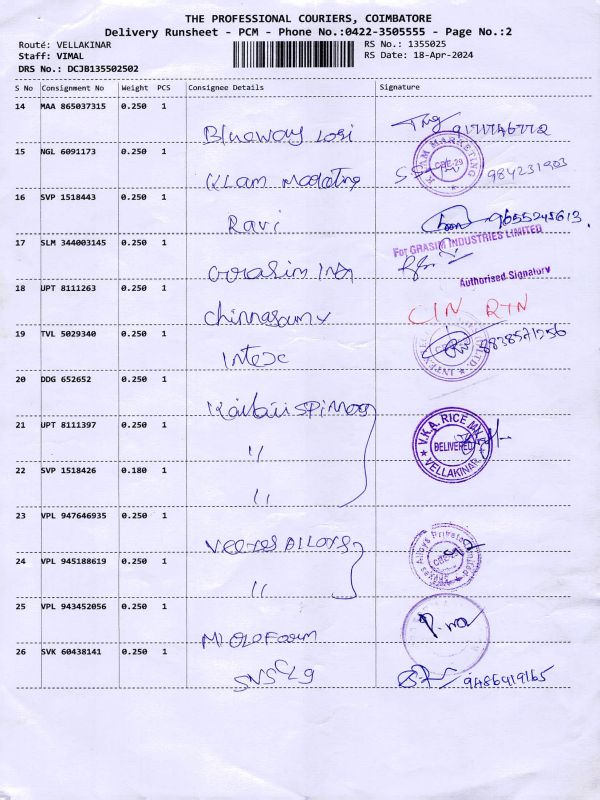 THE PROFESSIONAL COURIERS, COIMBATORE
Delivery Runsheet - PCM - Phone No.:0422-3505555 - Page No.:2
Route: VELLAKINAR RS No.: 1355025
Staff: VIMAL RS Date: 18-Apr-2024
DRS No.: DCJB135502502
S No Consignment No Weight PCS Consignee Details Signature
14 MAA 865037315 0.250 1
Blueway
15 NGL 6091173 0.250 1
K.LAM MARKETING
CBE-29
KLam
16 SVP 1518443 0.250 1
Ravi 9655245613
17 SLM 344003145 0.250 1
For GRASIM INDUSTRIES LIMITED
Authorised Signatory
Grasim Ind
18 UPT 8111263 0.250 1
Chinnasamy CIN RTN
19 TVL 5029340 0.250 1
Intex 8838571256
20 DDG 652652 0.250 1
21 UPT 8111397 0.250 1
V.K.A. RICE
DELIVERED
VELLAKINAR
"
22 SVP 1518426 0.180 1
"
23 VPL 947646935 0.250 1
Alloys Private Limited
Alloys
24 VPL 945188619 0.250 1
"
25 VPL 943452056 0.250 1
26 SVK 60438141 0.250 1
SNS Clg 9486419165